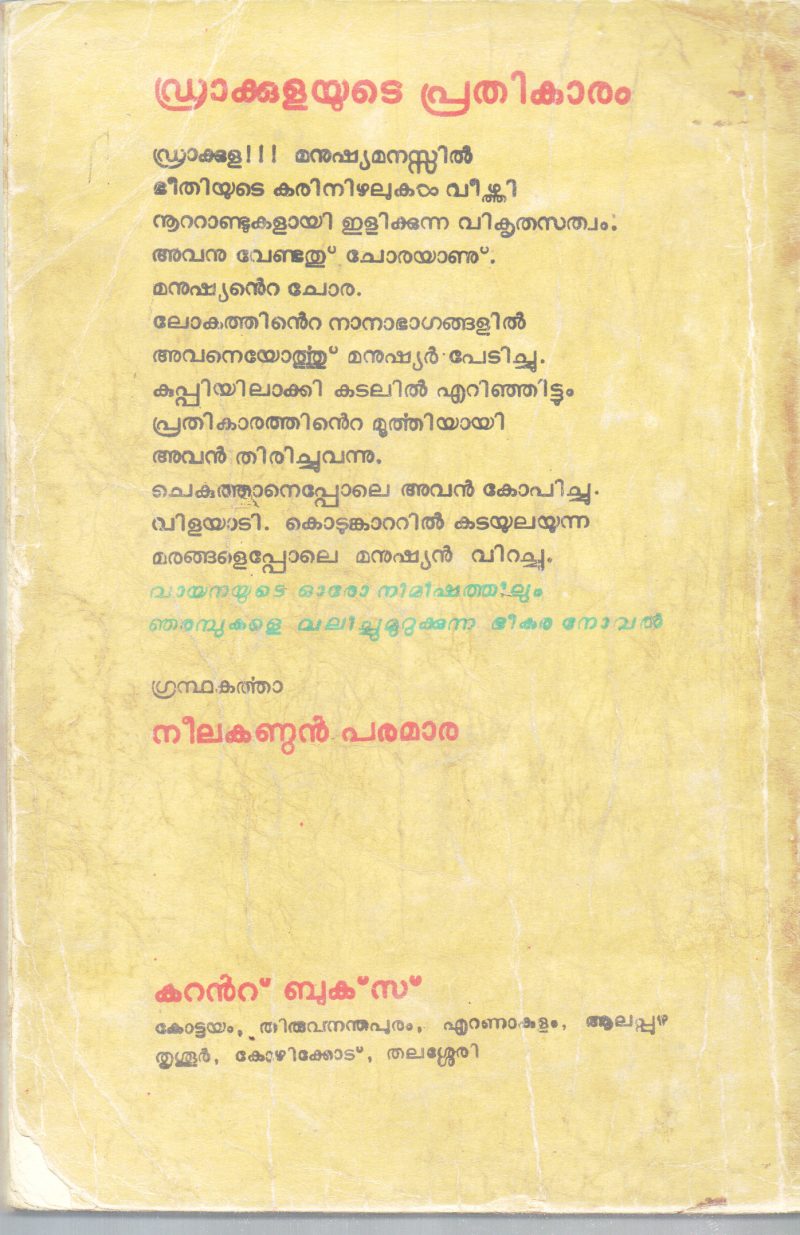 ഡ്രാക്കുളയുടെ പ്രതികാരം
ഡ്രാക്കുള!!! മനുഷ്യമനസ്സിൽ
ഭീതിയുടെ കരിനിഴലുകൾ വീഴ്ത്തി
നൂററാണ്ടുകളായി ഇളിക്കുന്ന വികൃതസത്വം.
അവനു വേണ്ടതു് ചോരയാണു്.
മനുഷ്യൻെറ ചോര.
ലോകത്തിൻെറ നാനാഭാഗങ്ങളിൽ
അവനെയോൎത്തു് മനുഷ്യർ പേടിച്ചു.
കുപ്പിയിലാക്കി കടലിൽ എറിഞ്ഞിട്ടും
പ്രതികാരത്തിൻെറ മൂൎത്തിയായി
അവൻ തിരിച്ചുവന്നു.
ചെകുത്താനെപ്പോലെ അവൻ കോപിച്ചു.
വിളയാടി. കൊടുങ്കാററിൽ കടയുലയുന്ന
മരങ്ങളെപ്പോലെ മനുഷ്യൻ വിറച്ചു.
വായനയുടെ ഓരോ നിമിഷത്തിലും
ഞരമ്പുകളെ വലിച്ചുമുറുക്കുന്ന ഭീകര നോവൽ
ഗ്രന്ഥകൎത്താ
നീലകണ്ഠൻ പരമാര
കറൻറ് ബുക്സ്
കോട്ടയം, തിരുവനന്തപുരം, എറണാകുളം, ആലപ്പുഴ
തൃശ്ശൂർ, കോഴിക്കോട്, തലശ്ശേരി